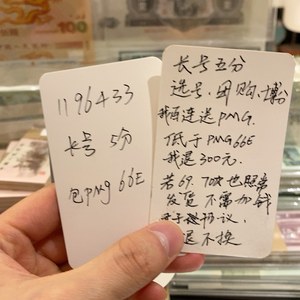 1196433
长号 5分
包PMG 66E
长号五分
选号、团购、博分
我再连送PMG.
低于PMG66E
我退300元.
若69.70分也照常
发货 不需加钱
协议,
退不换